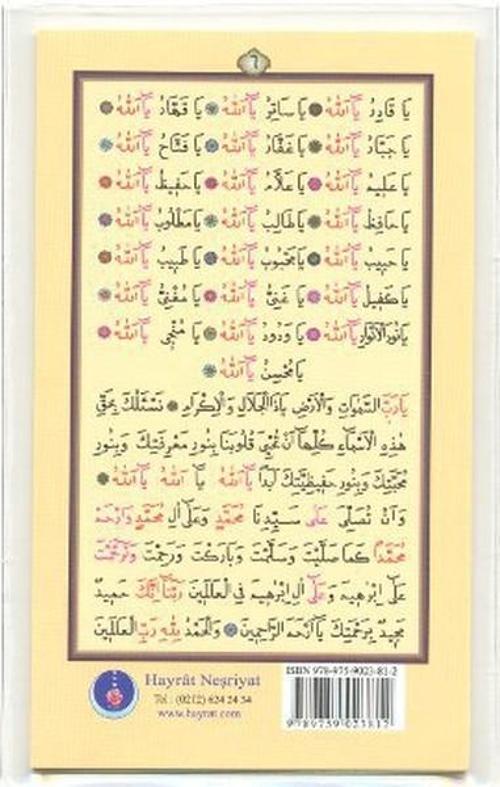 ٦
يَا قَادِرُ يَا اَللّٰهُ ❁ يَا سَاتِرُ يَا اَللّٰهُ ❁ يَا قَهَّارُ يَا اَللّٰهُ ❁
يَا جَبَّارُ يَا اَللّٰهُ ❁ يَا غَفَّارُ يَا اَللّٰهُ ❁ يَا فَتَّاحُ يَا اَللّٰهُ ❁
يَا عَلِيمُ يَا اَللّٰهُ ❁ يَا عَلَّامُ يَا اَللّٰهُ ❁ يَا حَفِيظُ يَا اَللّٰهُ ❁
يَا حَافِظُ يَا اَللّٰهُ ❁ يَا طَالِبُ يَا اَللّٰهُ ❁ يَا مَطْلُوبُ يَا اَللّٰهُ ❁
يَا حَبِيبُ يَا اَللّٰهُ ❁ يَا مَحْبُوبُ يَا اَللّٰهُ ❁ يَا طَبِيبُ يَا اَللّٰهُ ❁
يَا كَفِيلُ يَا اَللّٰهُ ❁ يَا غَنِيُّ يَا اَللّٰهُ ❁ يَا مُغْنِيُّ يَا اَللّٰهُ ❁
يَا نُورَ الْاَنْوَارِ يَا اَللّٰهُ ❁ يَا وَدُودُ يَا اَللّٰهُ ❁ يَا مُنْجِى يَا اَللّٰهُ ❁
يَا مُحْسِنُ يَا اَللّٰهُ ❁
يَا رَبَّ السَّمٰوَاتِ وَالْاَرْضِ يَا ذَا الْجَلَالِ وَالْاِكْرَامِ ❁ نَسْئَلُكَ بِحَقِّ
هٰذِهِ الْاَسْمَاءِ كُلِّهَا اَنْ تُحْيِىَ قُلُوبَنَا بِنُورِ مَعْرِفَتِكَ وَبِنُورِ
مَحَبَّتِكَ وَبِنُورِ حَفِيظِيَّتِكَ اَبَدًا يَا اَللّٰهُ يَا اَللّٰهُ يَا اَللّٰهُ ❁
وَاَنْ تُصَلِّىَ عَلٰى سَيِّدِنَا مُحَمَّدٍ وَعَلٰى اٰلِ مُحَمَّدٍ وَارْحَمْ
مُحَمَّدًا كَمَا صَلَّيْتَ وَسَلَّمْتَ وَبَارَكْتَ وَرَحِمْتَ وَتَرَحَّمْتَ
عَلٰى اِبْرٰهِيمَ وَعَلٰى اٰلِ اِبْرٰهِيمَ فِى الْعَالَمِينَ رَبَّنَا اِنَّكَ حَمِيدٌ
مَجِيدٌ بِرَحْمَتِكَ يَا اَرْحَمَ الرَّاحِمِينَ ❁ وَالْحَمْدُ لِلّٰهِ رَبِّ الْعَالَمِينَ
Hayrât Neşriyat
Tel : (0212) 624 24 34
www.hayrat.com
ISBN 978-975-9023-81-2
9789759023812